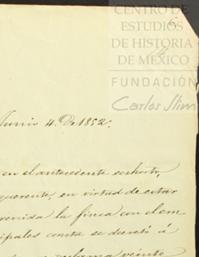 CENTRO DE
ESTUDIOS
DE HISTORIA
DE MÉXICO
FUNDACIÓN
Carlos Slim
Junio 4. De 1852.
en el antecedente exhorto,
querente, en virtud de estar
venida la finca con el em
cipales contra se decretó á
reclama veinte